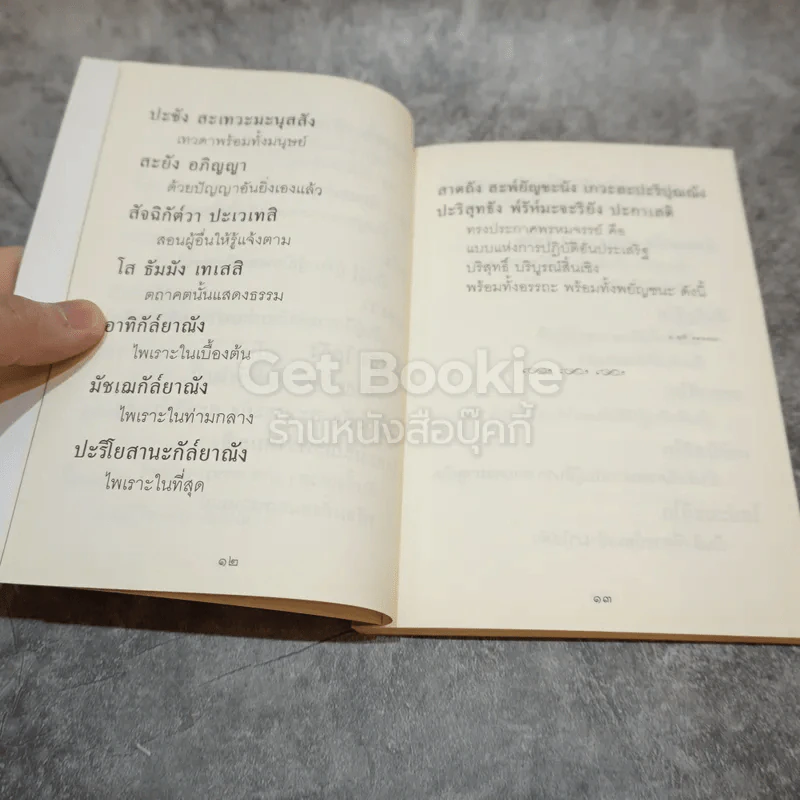 ปะชัง สะเทวะมะนุสสัง
เทวดาพร้อมทั้งมนุษย์
สะยัง อภิญญา
ด้วยปัญญาอันยิ่งเองแล้ว
สัจฉิกัต์วา ปะเวเทสิ
สอนผู้อื่นให้รู้แจ้งตาม
โส ธัมมัง เทเสสิ
ตถาคตนั้นแสดงธรรม
อาทิกัล์ยาณัง
ไพเราะในเบื้องต้น
มัชเฌกัล์ยาณัง
ไพเราะในท่ามกลาง
ปะริโยสานะกัล์ยาณัง
ไพเราะในที่สุด
๑๒
สาตถัง สะพ์ยัญชะนัง เกวะละปะริปุณณัง
ปะริสุทธัง พ์รัห์มะจะริยัง ปะกาเสติ
ทรงประกาศพรหมจรรย์ คือ
แบบแห่งการปฏิบัติอันประเสริฐ
บริสุทธิ์ บริบูรณ์สิ้นเชิง
พร้อมทั้งอรรถะ พร้อมทั้งพยัญชนะ ดังนี้
๑๓
Get Bookie
ร้านหนังสือบุ๊คกี้